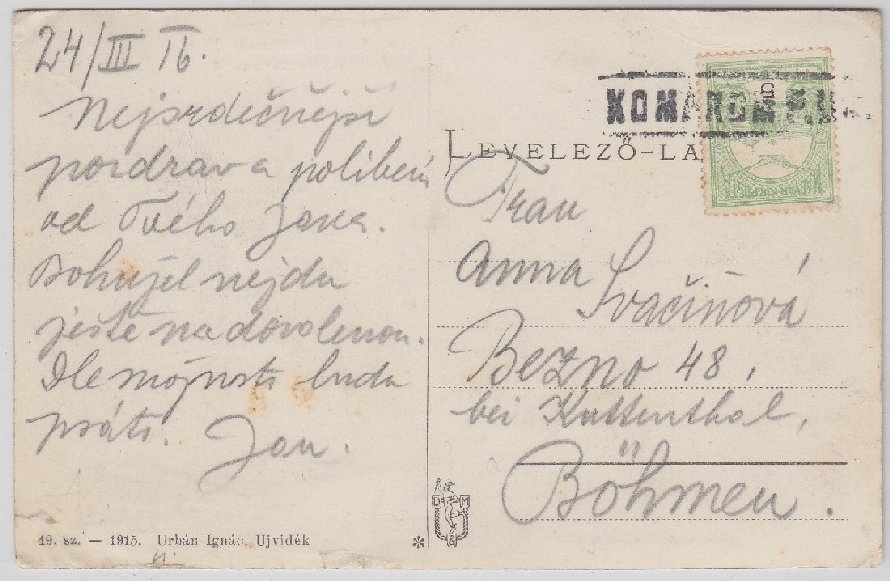 24/III 16.
Nejsrdečnější
pozdrav a políbení
od Tvého Jana.
Bohužel nejdu
ještě na dovolenou.
Dle možnosti budu
psáti. Jan.
KOMÁROM
LEVELEZŐ-LA
Frau
Anna Svačinová
Bezno 48,
bei Kuttenthal,
Böhmen.
D M
49. sz. — 1915. Urbán Ignác, Ujvidék
*